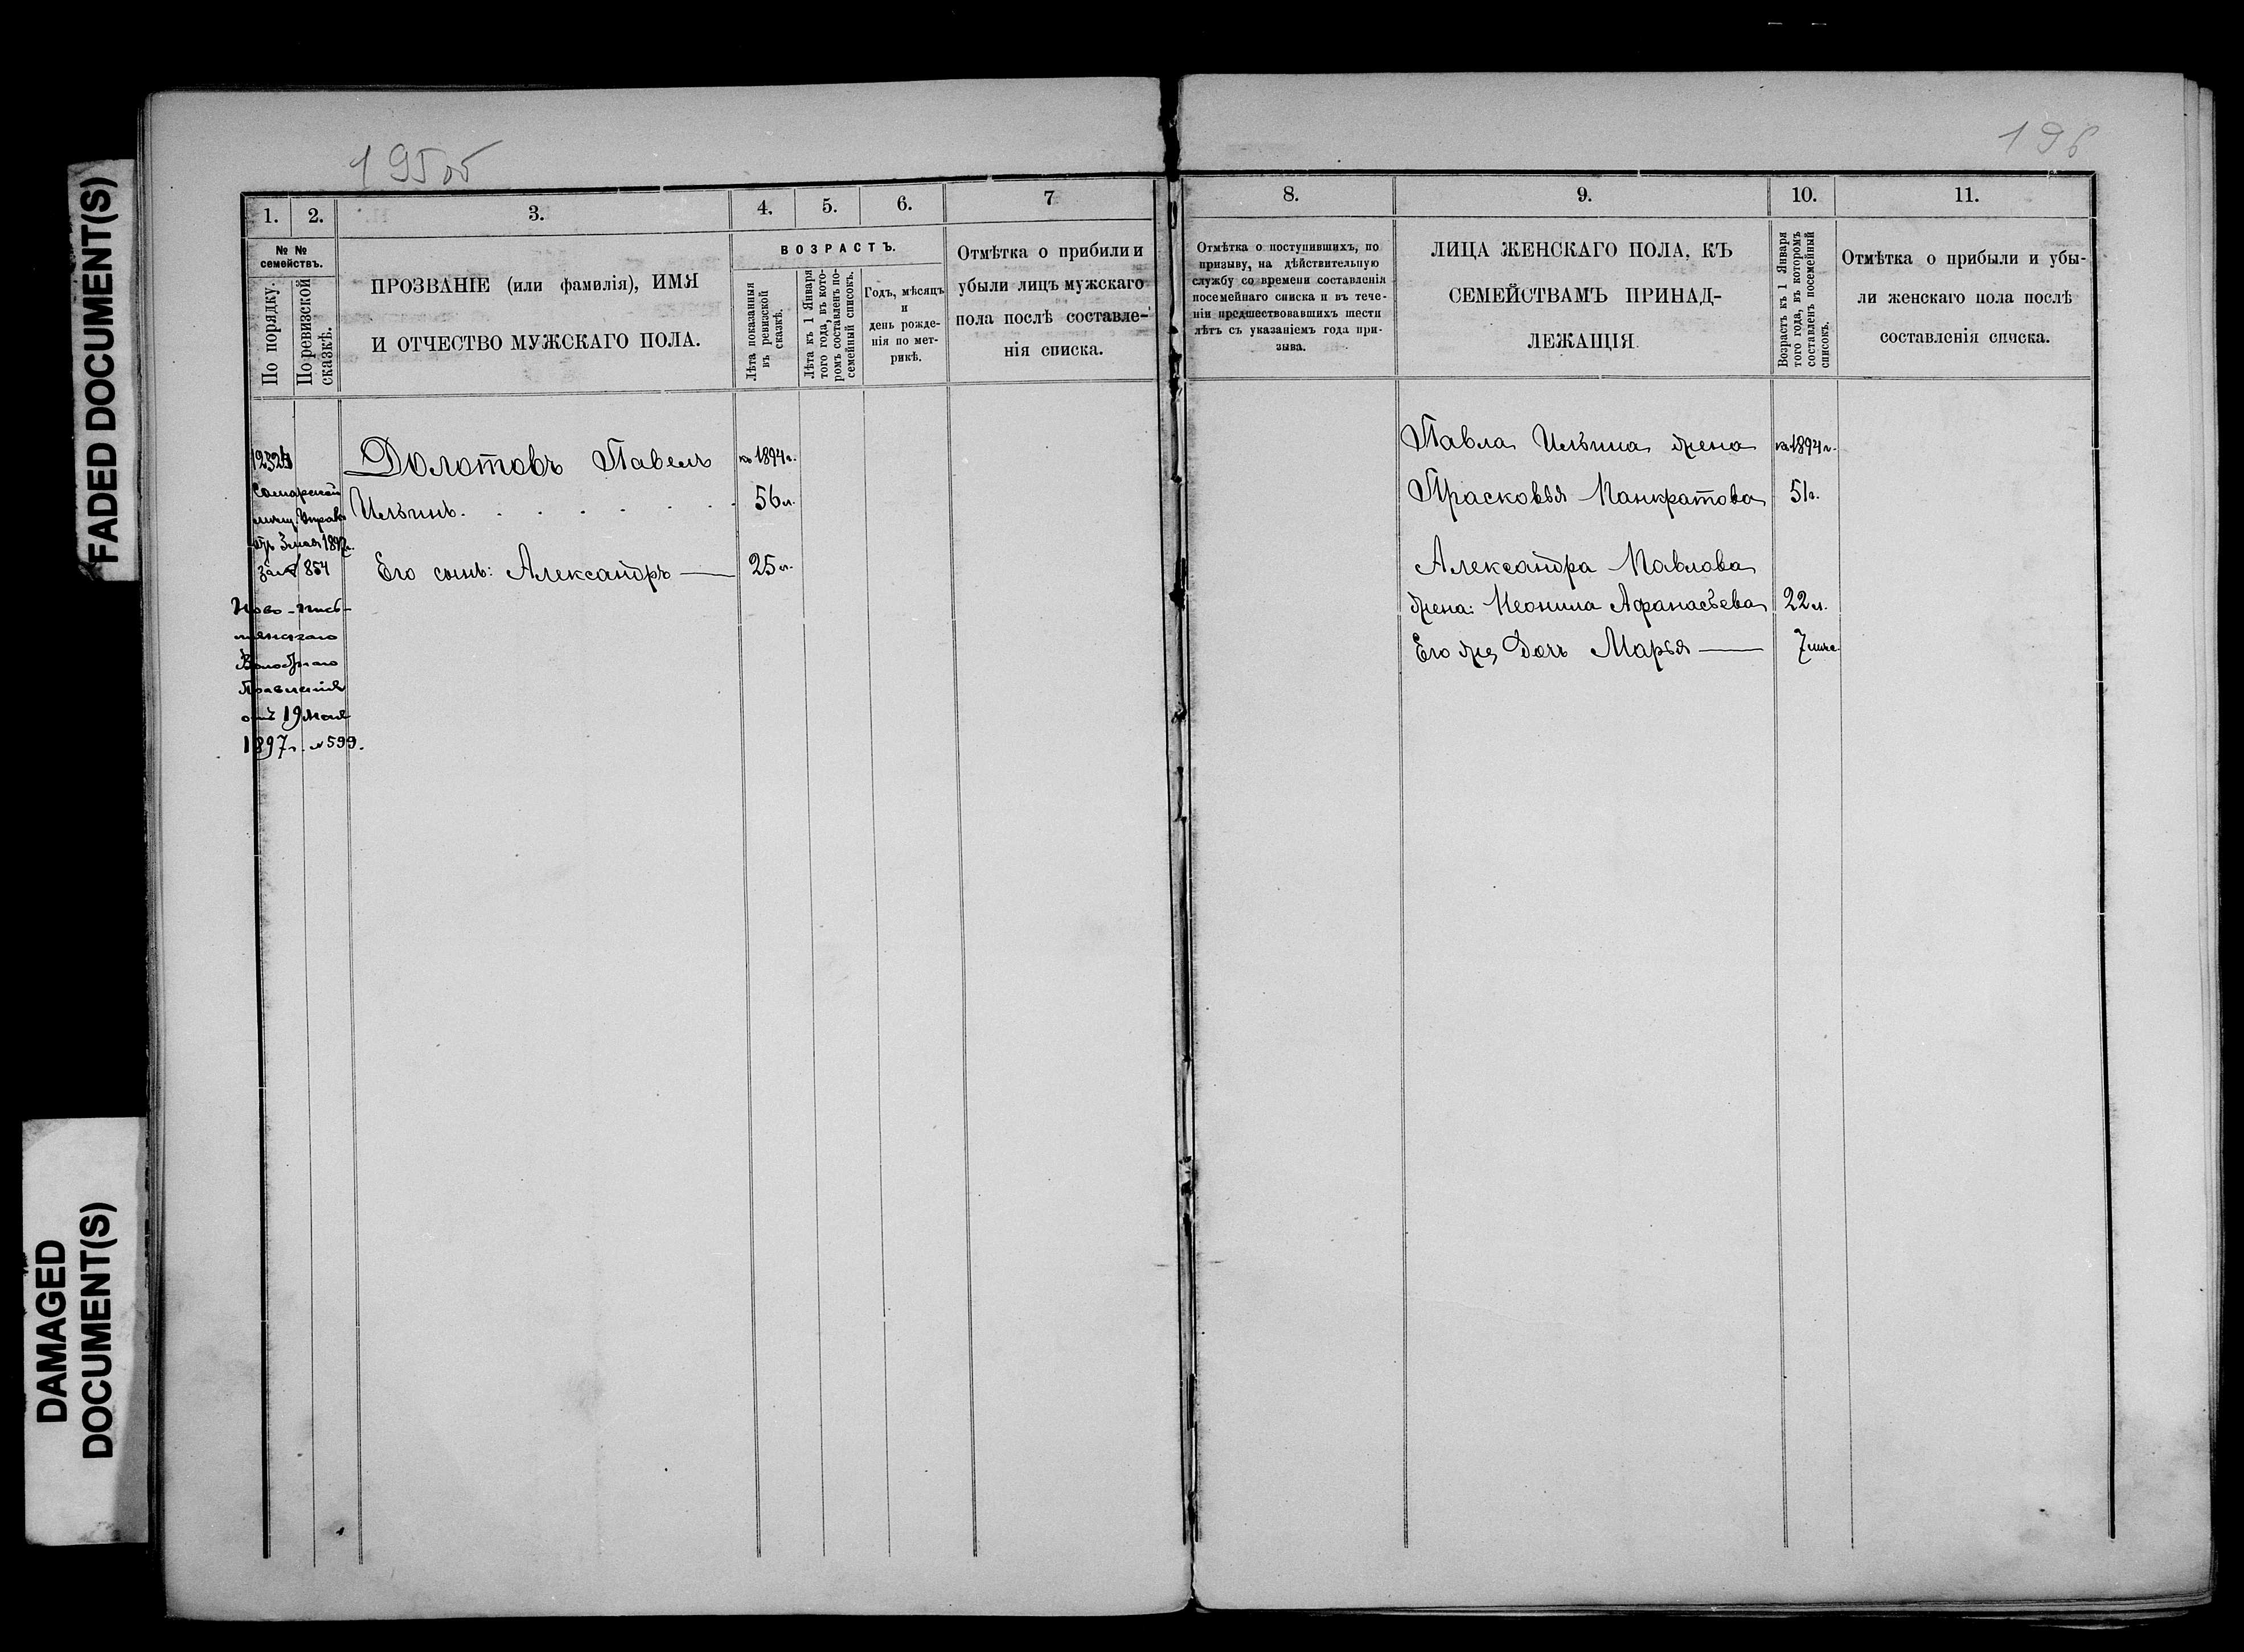 FADED DOCUMENT(S)
DAMAGED
DOCUMENT(S)
195об
1.
2.
3.
4.
5.
6.
7
№ №
семействъ.
По порядку.
По ревизской
сказкѣ.
ПРОЗВАНІЕ (или фамилія), ИМЯ
И ОТЧЕСТВО МУЖСКАГО ПОЛА.
ВОЗРАСТЪ.
Лѣта показанныя
въ ревизской
сказкѣ.
Лѣта къ 1 Января
того года, въ кото-
ромъ составленъ по-
семейный списокъ.
Годъ, мѣсяцъ
и
день рожде-
нія по мет-
рикѣ.
Отмѣтка о прибыли и
убыли лицъ мужскаго
пола послѣ составле-
нія списка.
Самарской
мѣщ. Управ.
отъ 3 мая 1897г.
за № 854
Волостнаго
Правленія
отъ 19 Мая
1897г. № 599.
Долотовъ Павелъ
къ 1894г.
Ильинъ.
56 л.
Его сынъ: Александръ —
25 л.
196
8.
9.
10.
11.
Отмѣтка о поступившихъ, по
призыву, на дѣйствительную
службу со времени составленія
посемейнаго списка и въ тече-
ніи предшествовавшихъ шести
лѣтъ съ указаніемъ года при-
зыва.
ЛИЦА ЖЕНСКАГО ПОЛА, КЪ
СЕМЕЙСТВАМЪ ПРИНАД-
ЛЕЖАЩІЯ
Возрастъ къ 1 Января
того года, въ которомъ
составленъ посемейный
списокъ.
Отмѣтка о прибыли и убы-
ли женскаго пола послѣ
составленія списка.
Павла Ильина жена
къ 1894 г.
Прасковья Панкратова
51 г.
Александра Павлова
жена: Неонила Афанасьева
22 л.
Его же дочь Марья —
7 мѣс.